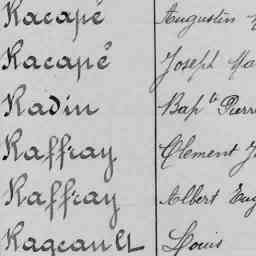 Racapé Augustin
Racapé Joseph Ma
Radin Bapte Pierr
Raffray Clement J
Raffray Albert Eug
Rageault Louis